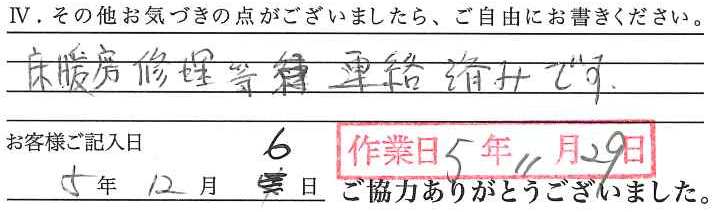 Ⅳ．その他お気づきの点がございましたら、ご自由にお書きください。
床暖房修理等 連絡済みです.
お客様ご記入日
5年 12月 6日
作業日 5年 11月 29日
ご協力ありがとうございました。